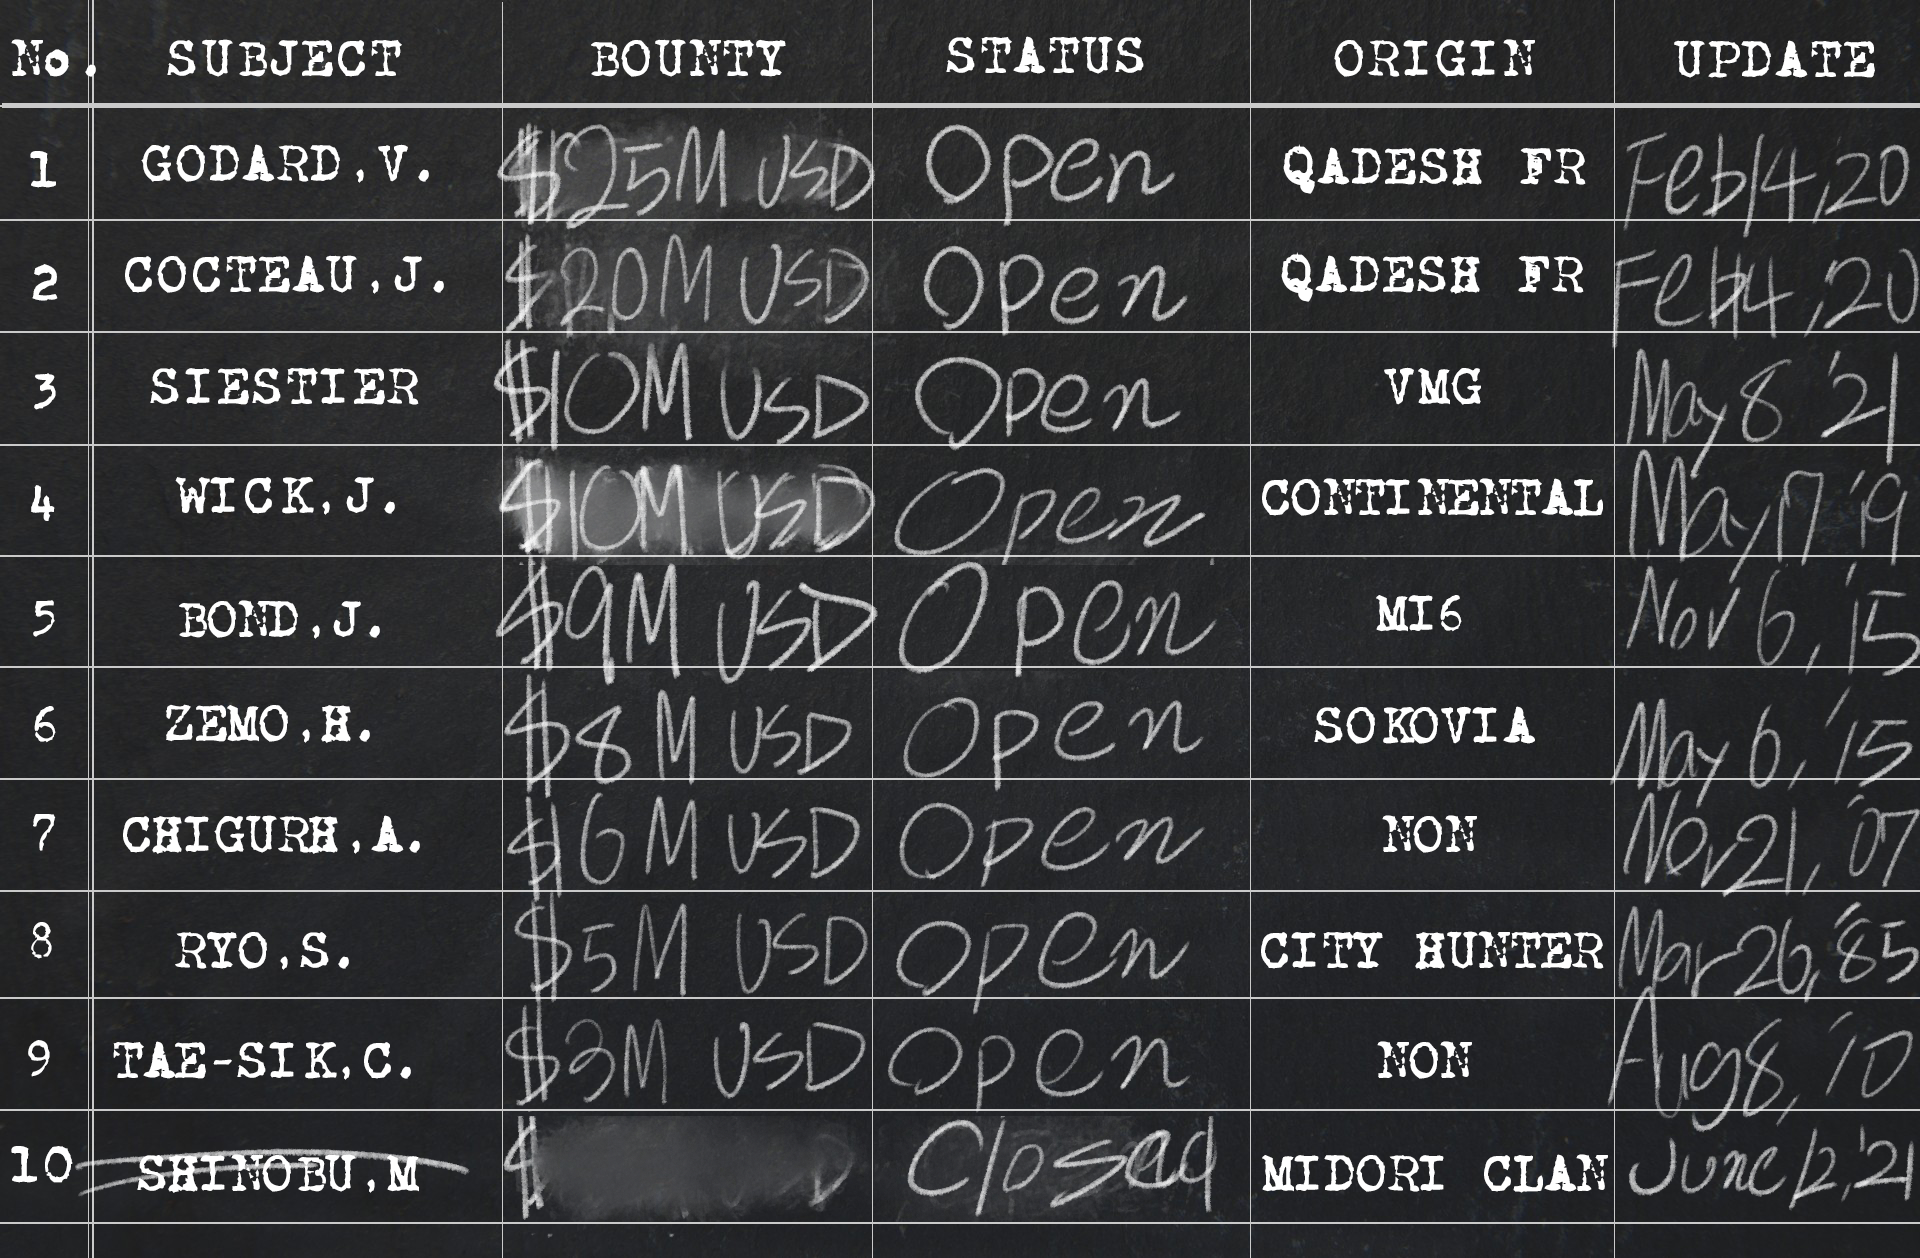 No. SUBJECT BOUNTY STATUS ORIGIN UPDATE
1 GODARD,V. $25M USD Open QADESH FR Feb14,20
2 COCTEAU,J. $20M USD Open QADESH FR Feb14,20
3 SIESTIER $10M USD Open VMG May 8 '21
4 WICK,J. $10M USD Open CONTINENTAL May 17 '19
5 BOND,J. $9M USD Open MI6 Nov 6, '15
6 ZEMO,H. $8M USD Open SOKOVIA May 6, '15
7 CHIGURH,A. $6M USD Open NON Nov21, '07
8 RYO,S. $5M USD Open CITY HUNTER Mar26,'85
9 TAE-SIK,C. $3M USD Open NON Aug8, '10
10 SHINOBU,M $ Closed MIDORI CLAN June12,'21